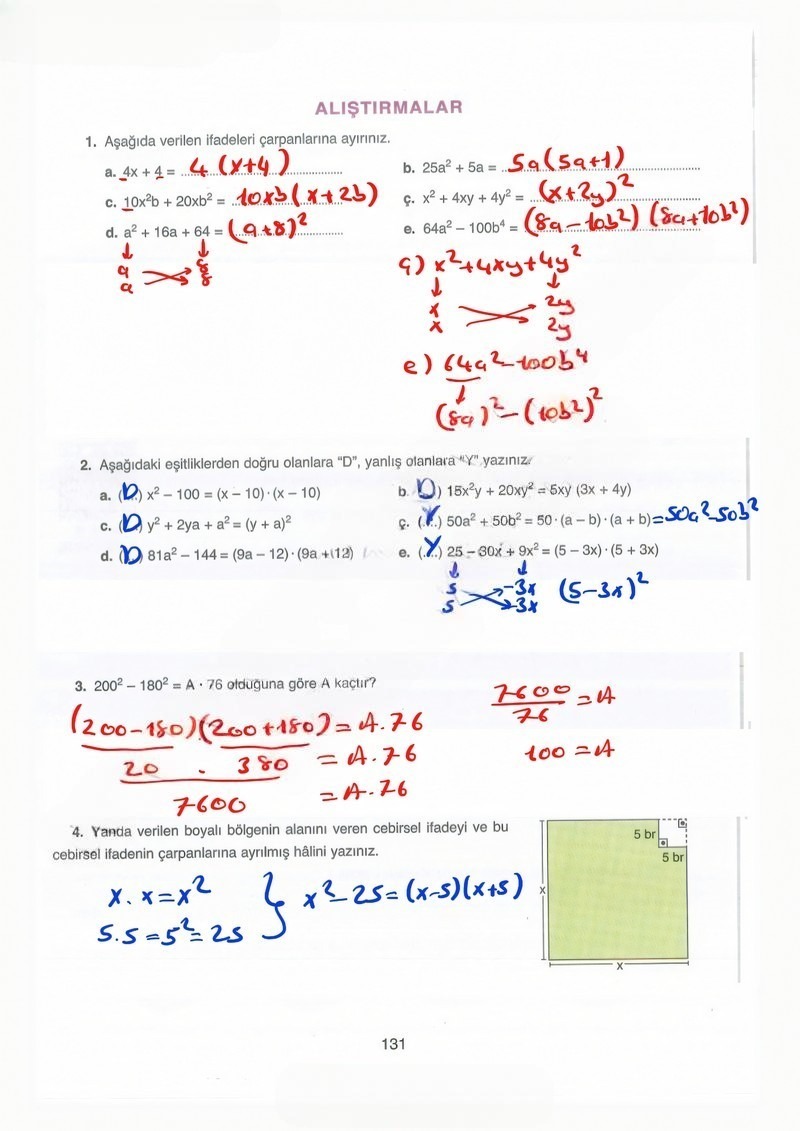 ALIŞTIRMALAR
1. Aşağıda verilen ifadeleri çarpanlarına ayırınız.
a. 4x + 4 = 4 (x+4)
b. 25a² + 5a = 5a(5a+1)
c. 10x²b + 20xb² = 10xb(x+2b)
ç. x² + 4xy + 4y² = (x+2y)²
d. a² + 16a + 64 = (a+8)²
e. 64a² – 100b⁴ = (8a-10b²) (8a+10b²)
a 8
a 8
ç) x²+4xy+4y²
x 2y
x 2y
e) 64a²-100b⁴
(8a)²-(10b²)²
2. Aşağıdaki eşitliklerden doğru olanlara "D", yanlış olanlara "Y" yazınız.
a. (D) x² – 100 = (x – 10)·(x – 10)
b. (D) 15x²y + 20xy² = 5xy (3x + 4y)
c. (D) y² + 2ya + a² = (y + a)²
ç. (Y) 50a² + 50b² = 50·(a – b)·(a + b) = 50a²-50b²
d. (D) 81a² – 144 = (9a – 12)·(9a + 12)
e. (Y) 25 – 30x + 9x² = (5 – 3x)·(5 + 3x)
5 -3x (5-3x)²
5 -3x
3. 200² – 180² = A · 76 olduğuna göre A kaçtır?
(200-180)(200+180) = A.76
20 . 380 = A.76
7600 = A.76
7600/76 = A
100 = A
4. Yanda verilen boyalı bölgenin alanını veren cebirsel ifadeyi ve bu
cebirsel ifadenin çarpanlarına ayrılmış hâlini yazınız.
x.x=x² } x²-25=(x-5)(x+5)
5.5=5²=25
5 br
5 br
x
x
131